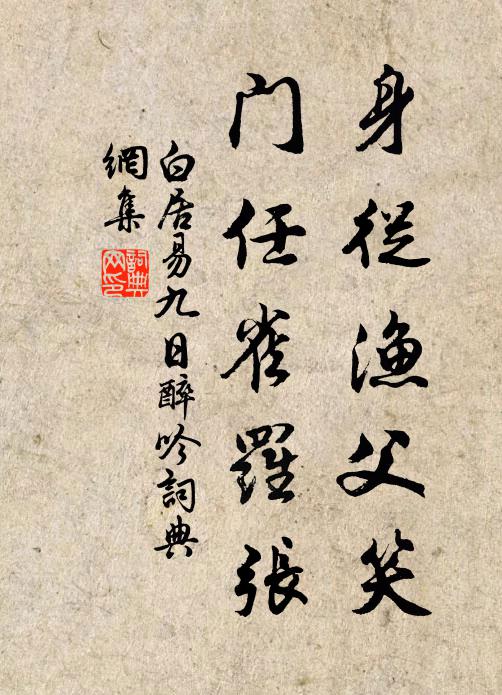 身從漁父笑
门任雀羅張
白居易九日醉吟詞典
網集
詞典
网印